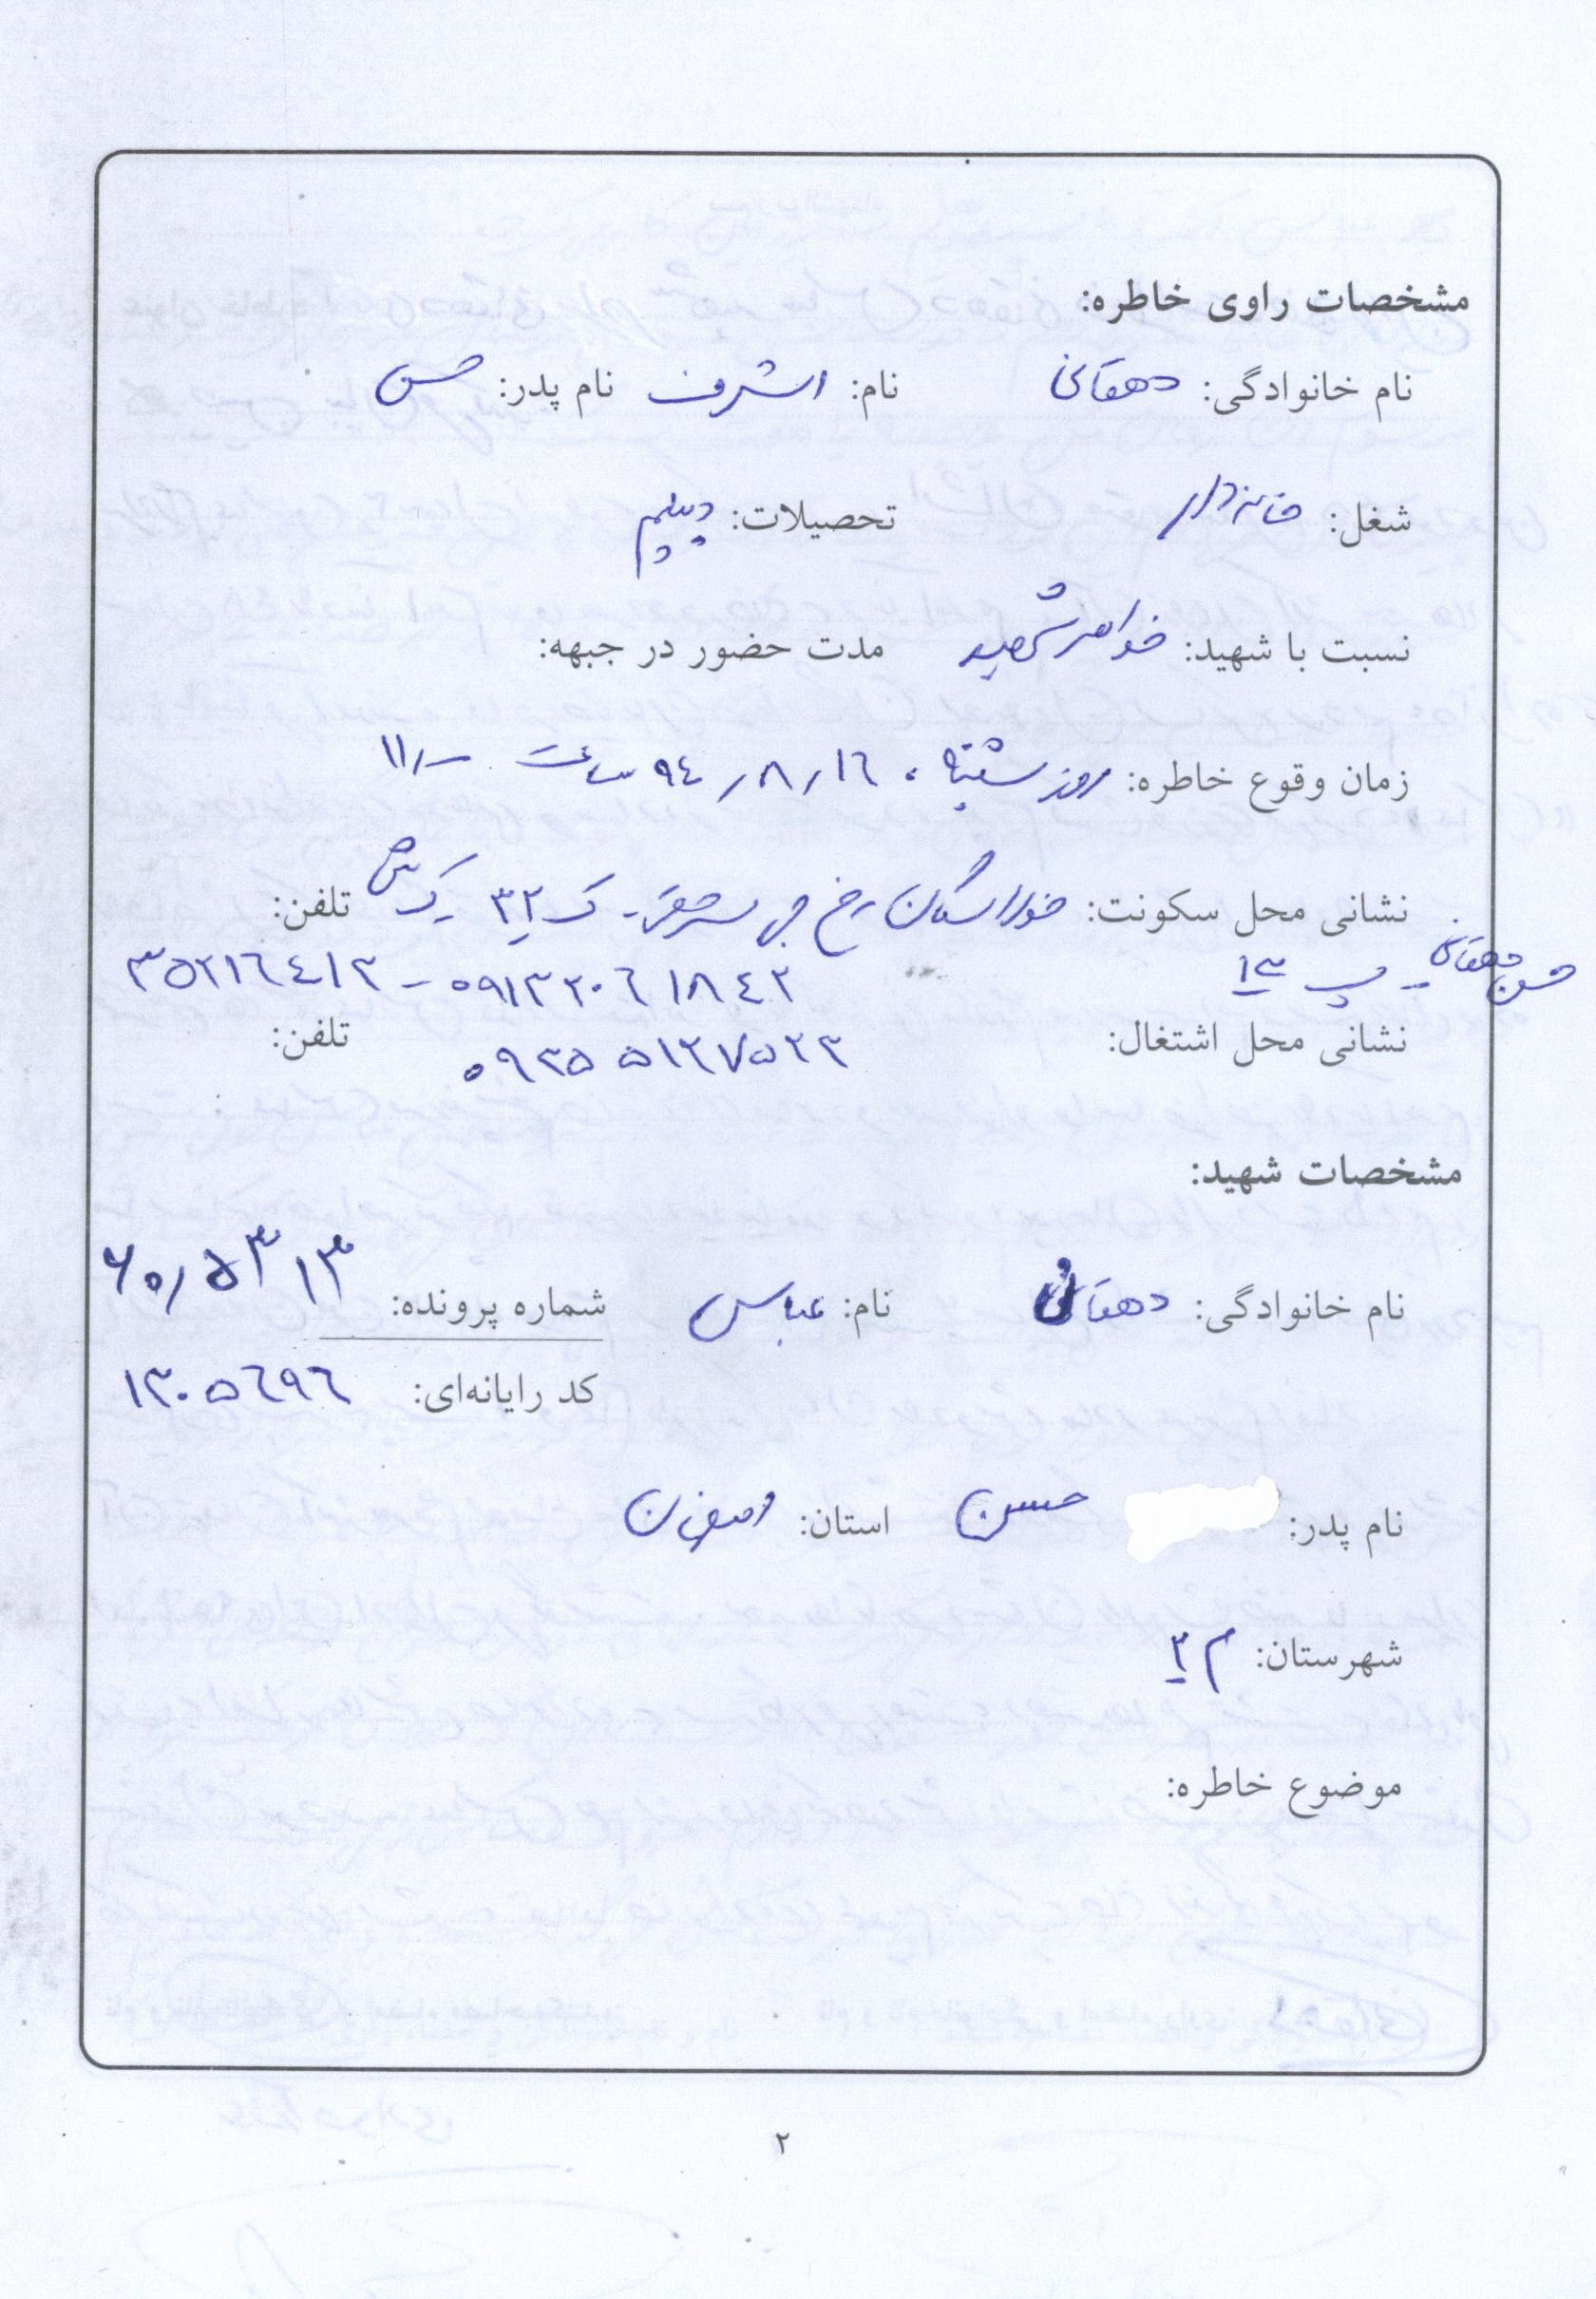 مشخصات راوی خاطره:
نام خانوادگی: دهقانی نام: اشرف نام پدر: حسن
شغل: خانه‌دار تحصیلات: دیپلم
نسبت با شهید: خواهر شهید مدت حضور در جبهه:
زمان وقوع خاطره: روز شنبه ۹٤/۸/۱٦ ساعت ۱۱/-
نشانی محل سکونت: خوراسگان خ جی شرقی - ک ۳۲ - ک ش تلفن:
حسن دهقانی - پ ۱۳ ۰۹۱۳۲۰٦۱۸٤۲ - ۳۵۲۱٦٤۱۳
نشانی محل اشتغال: ۰۹۳۵۵۱۲۷۵۲۳ تلفن:
مشخصات شهید:
نام خانوادگی: دهقانی نام: عباس شماره پرونده: ۶۰/۵۳۱۳
کد رایانه‌ای: ۱۳۰۵٦۹٦
نام پدر: حسن استان: اصفهان
شهرستان: م ۳
موضوع خاطره:
۲